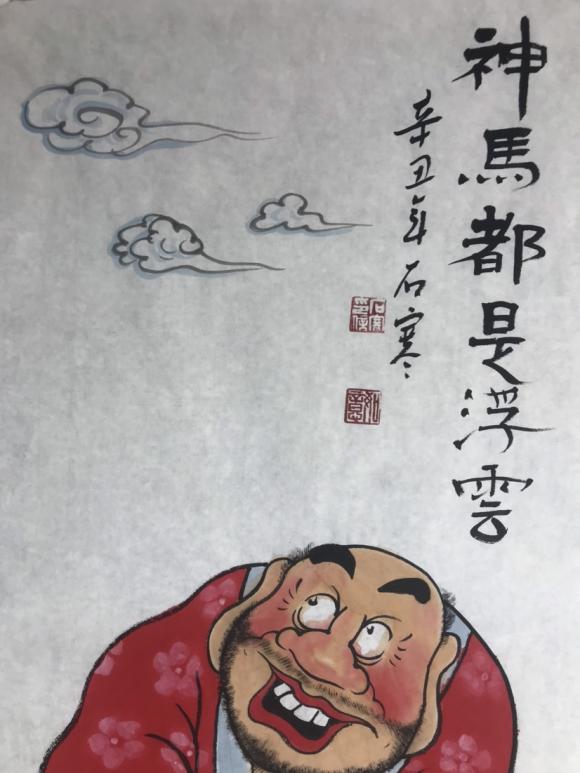 神馬都是浮雲
辛丑年石寒